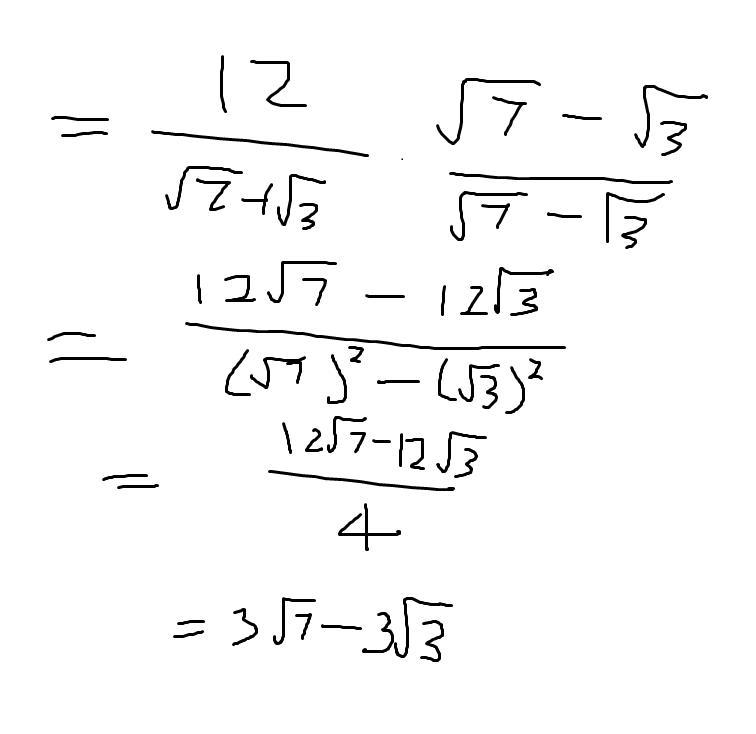 = 12/(√7+√3) · (√7 − √3)/(√7 − √3)
= (12√7 − 12√3)/((√7)² − (√3)²)
= (12√7 − 12√3)/4
= 3√7 − 3√3